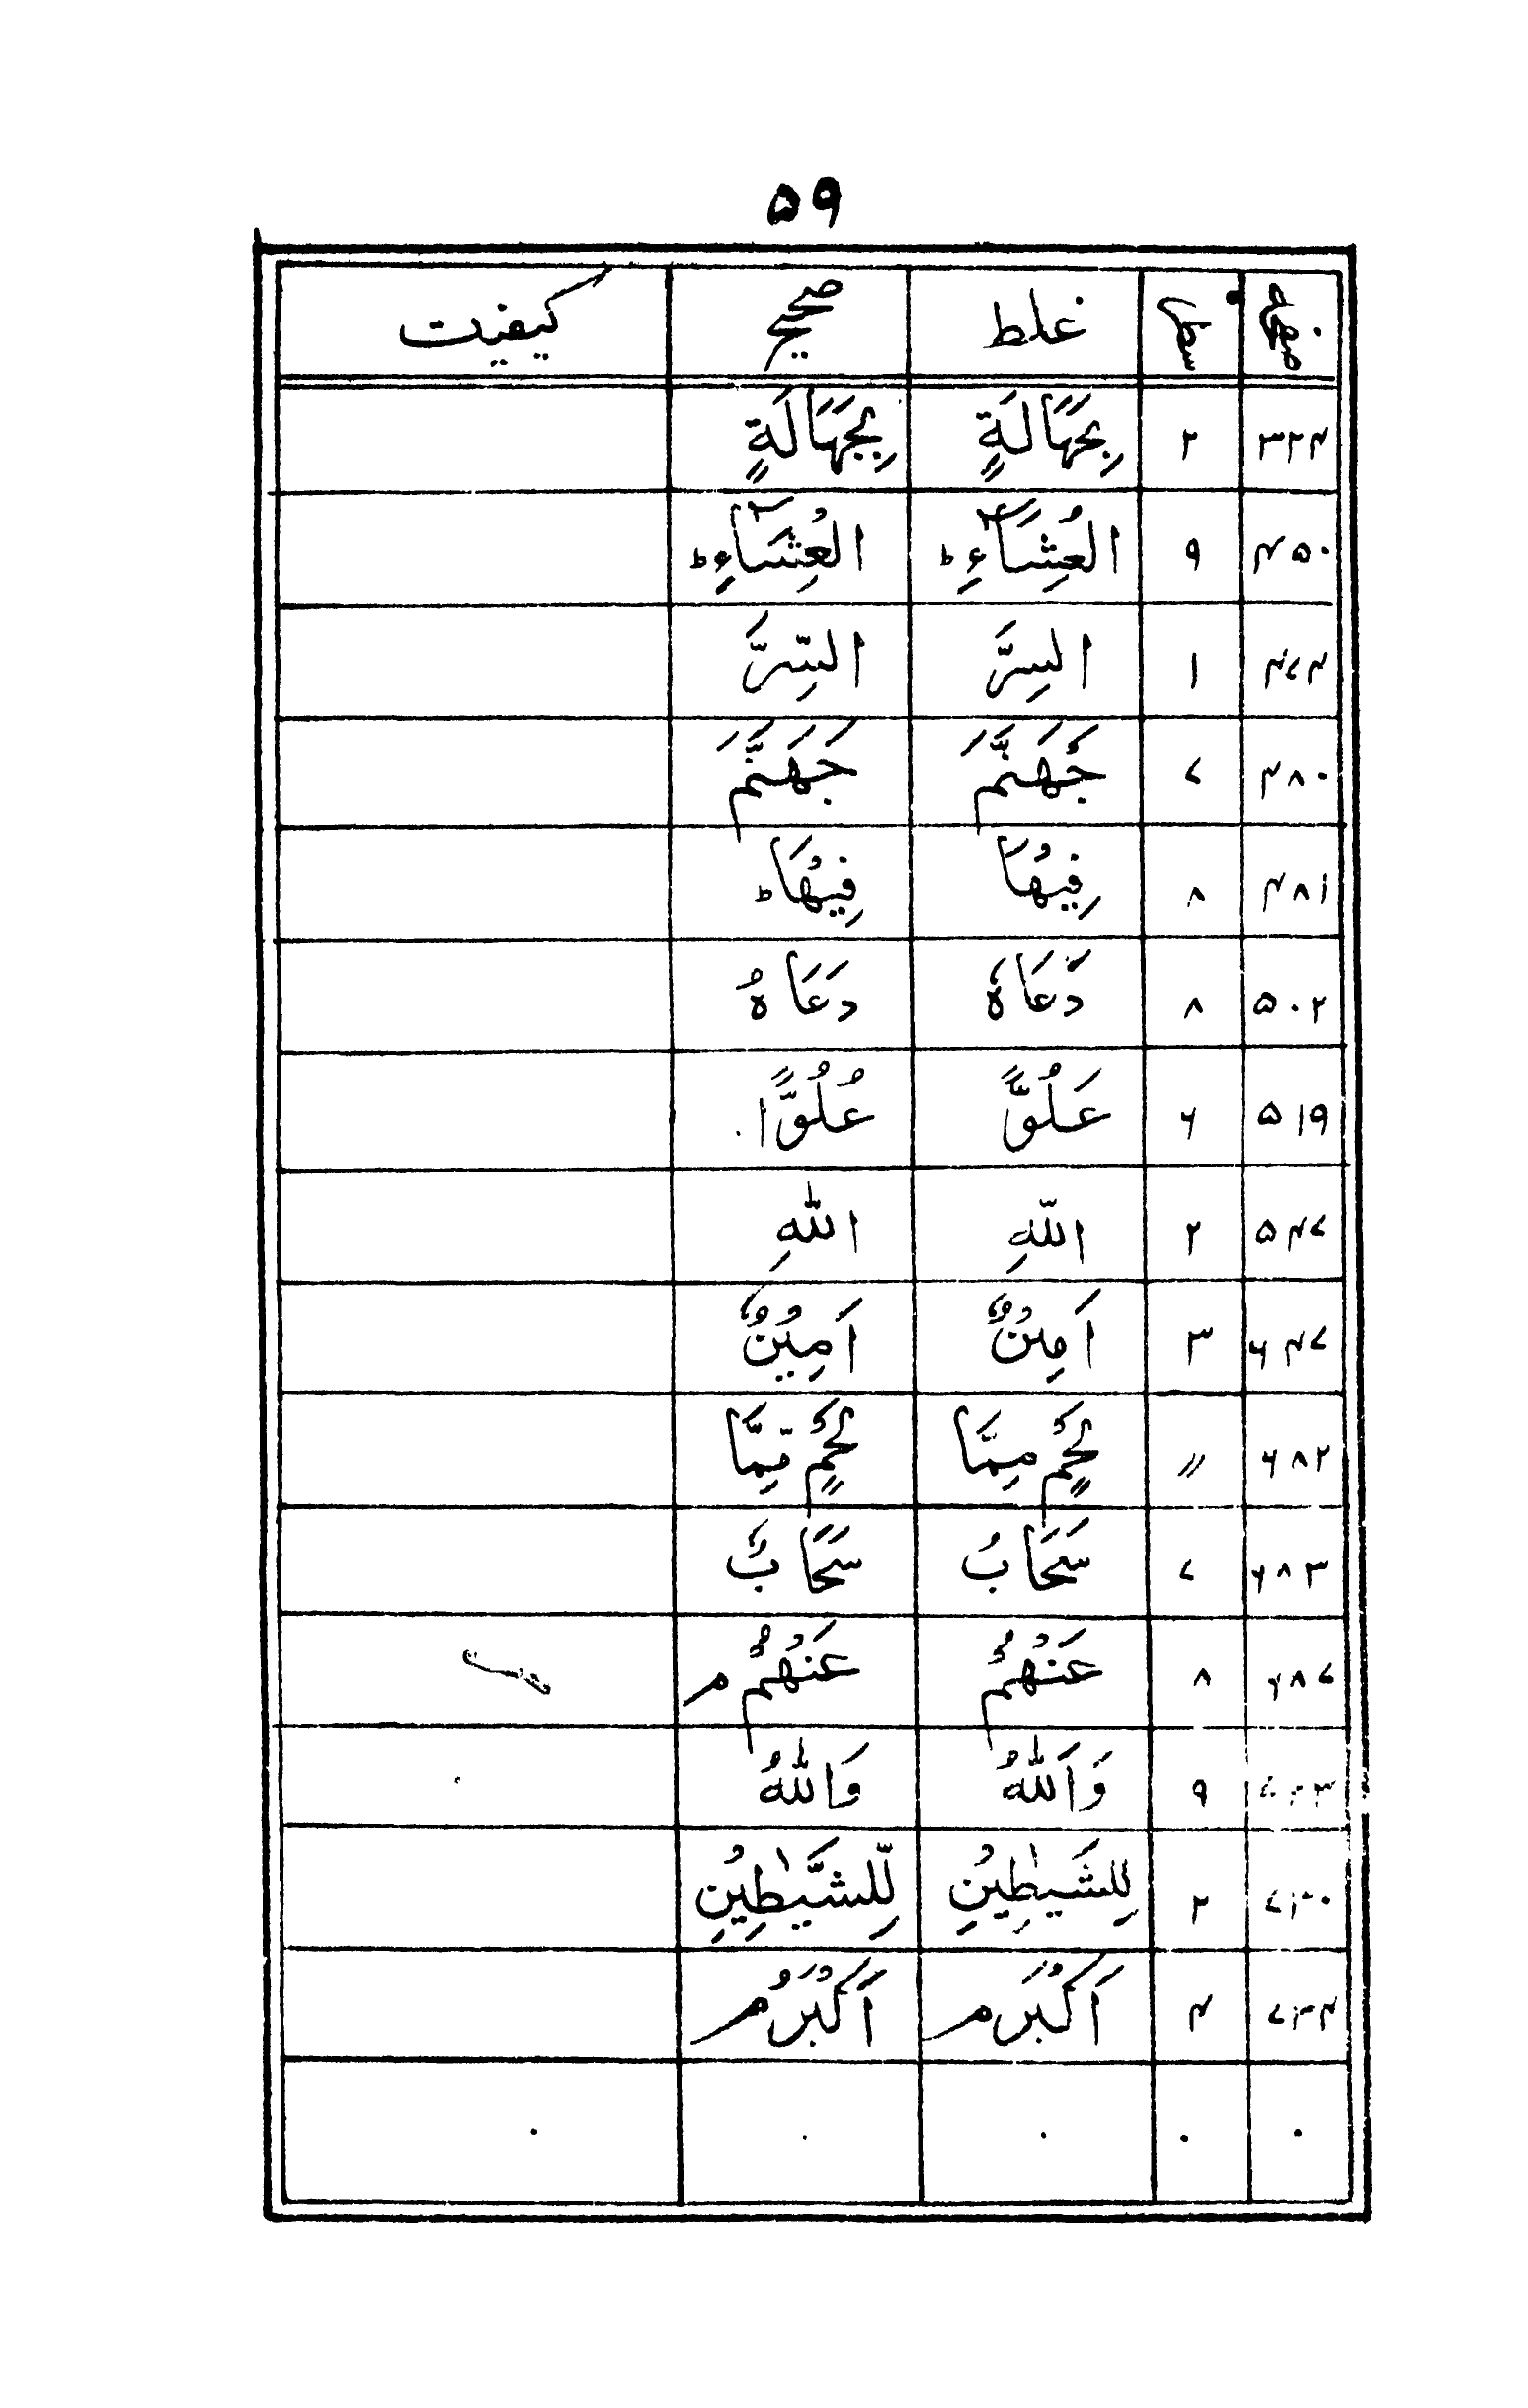 ۵۹
صفحہ سطر غلط صحیح کیفیت
۳۲۴ ۲ بِحَهَالَةٍ بِجَهَالَةٍ
۴۵۰ ۹ الْعُِشَآءِ ط الْعِشَآءِ ط
۴۷۴ ۱ السِرَّ السِّرَّ
۴۸۰ ۷ جَْهَنَّمَ جَهَنَّمَ
۴۸۱ ۸ فِيْهَا فِيْهَا ط
۵۰۲ ۸ دَّعَاهُ دَعَاهُ
۵۱۹ ۶ عَلُوًّ عُلُوًّا
۵۴۷ ۲ اللّهِ اللّٰهِ
۶۴۷ ۳ اَمِنْۢ اَمِيْنٌ
۶۸۲ 〃 لَحْمٍ مِمَّا لَحْمٍ مِّمَّا
۶۸۳ ۷ سَحَابُ سَحَابٌ
۶۸۷ ۸ عَنْهُمْ عَنْهُمْ م
۹ وَاَللّٰهُ وَاللّٰهُ
۷۳۰ ۲ لِلشَيٰطِيْنِ لِّلشَّيٰطِيْنِ
۷۳۴ ۴ اَكْبَرَ م اَكْبَرُ م